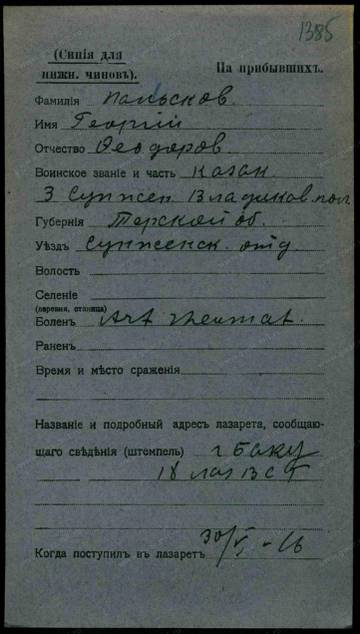 1385
(Синія для
нижн. чиновъ).
На прибывшихъ.
Фамилія Пальсков
Имя Георгій
Отчество Феодоров
Воинское званіе и часть казак
3 Сунжен Владиков пол
Губернія Терской об
Уѣздъ Сунженск. отд
Волость
Селеніе
(деревня, станица)
Боленъ Art rheumat.
Раненъ
Время и мѣсто сраженія
Названіе и подробный адресъ лазарета, сообщаю-
щаго свѣдѣнія (штемпель) г Баку
18 лаз В С Г
Когда поступилъ въ лазаретъ 30/V - 16